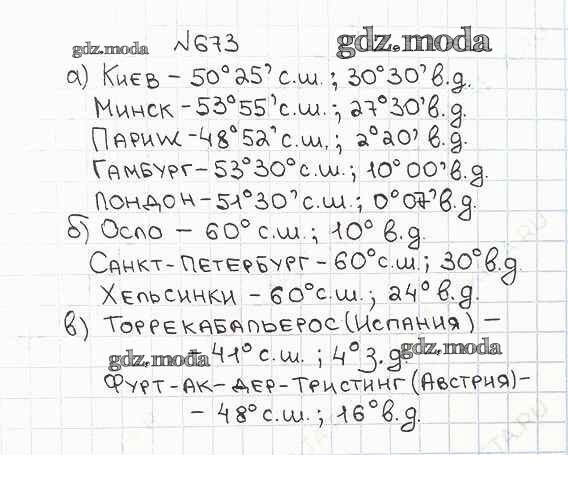 gdz.moda №673 gdz.moda
а) Киев - 50°25' с.ш.; 30°30' в.д.
Минск - 53°55' с.ш.; 27°30' в.д.
Париж - 48°52' с.ш.; 2°20' в.д.
Гамбург - 53°30° с.ш.; 10°00' в.д.
Лондон - 51°30' с.ш.; 0°07' в.д.
б) Осло - 60° с.ш.; 10° в.д.
Санкт-Петербург - 60° с.ш.; 30° в.д.
Хельсинки - 60° с.ш.; 24° в.д.
в) Торрекабальерос (Испания) -
gdz.moda - 41° с.ш.; 4° з.д. gdz.moda
Фурт-ак-дер-Тристинг (Австрия) -
- 48° с.ш.; 16° в.д.